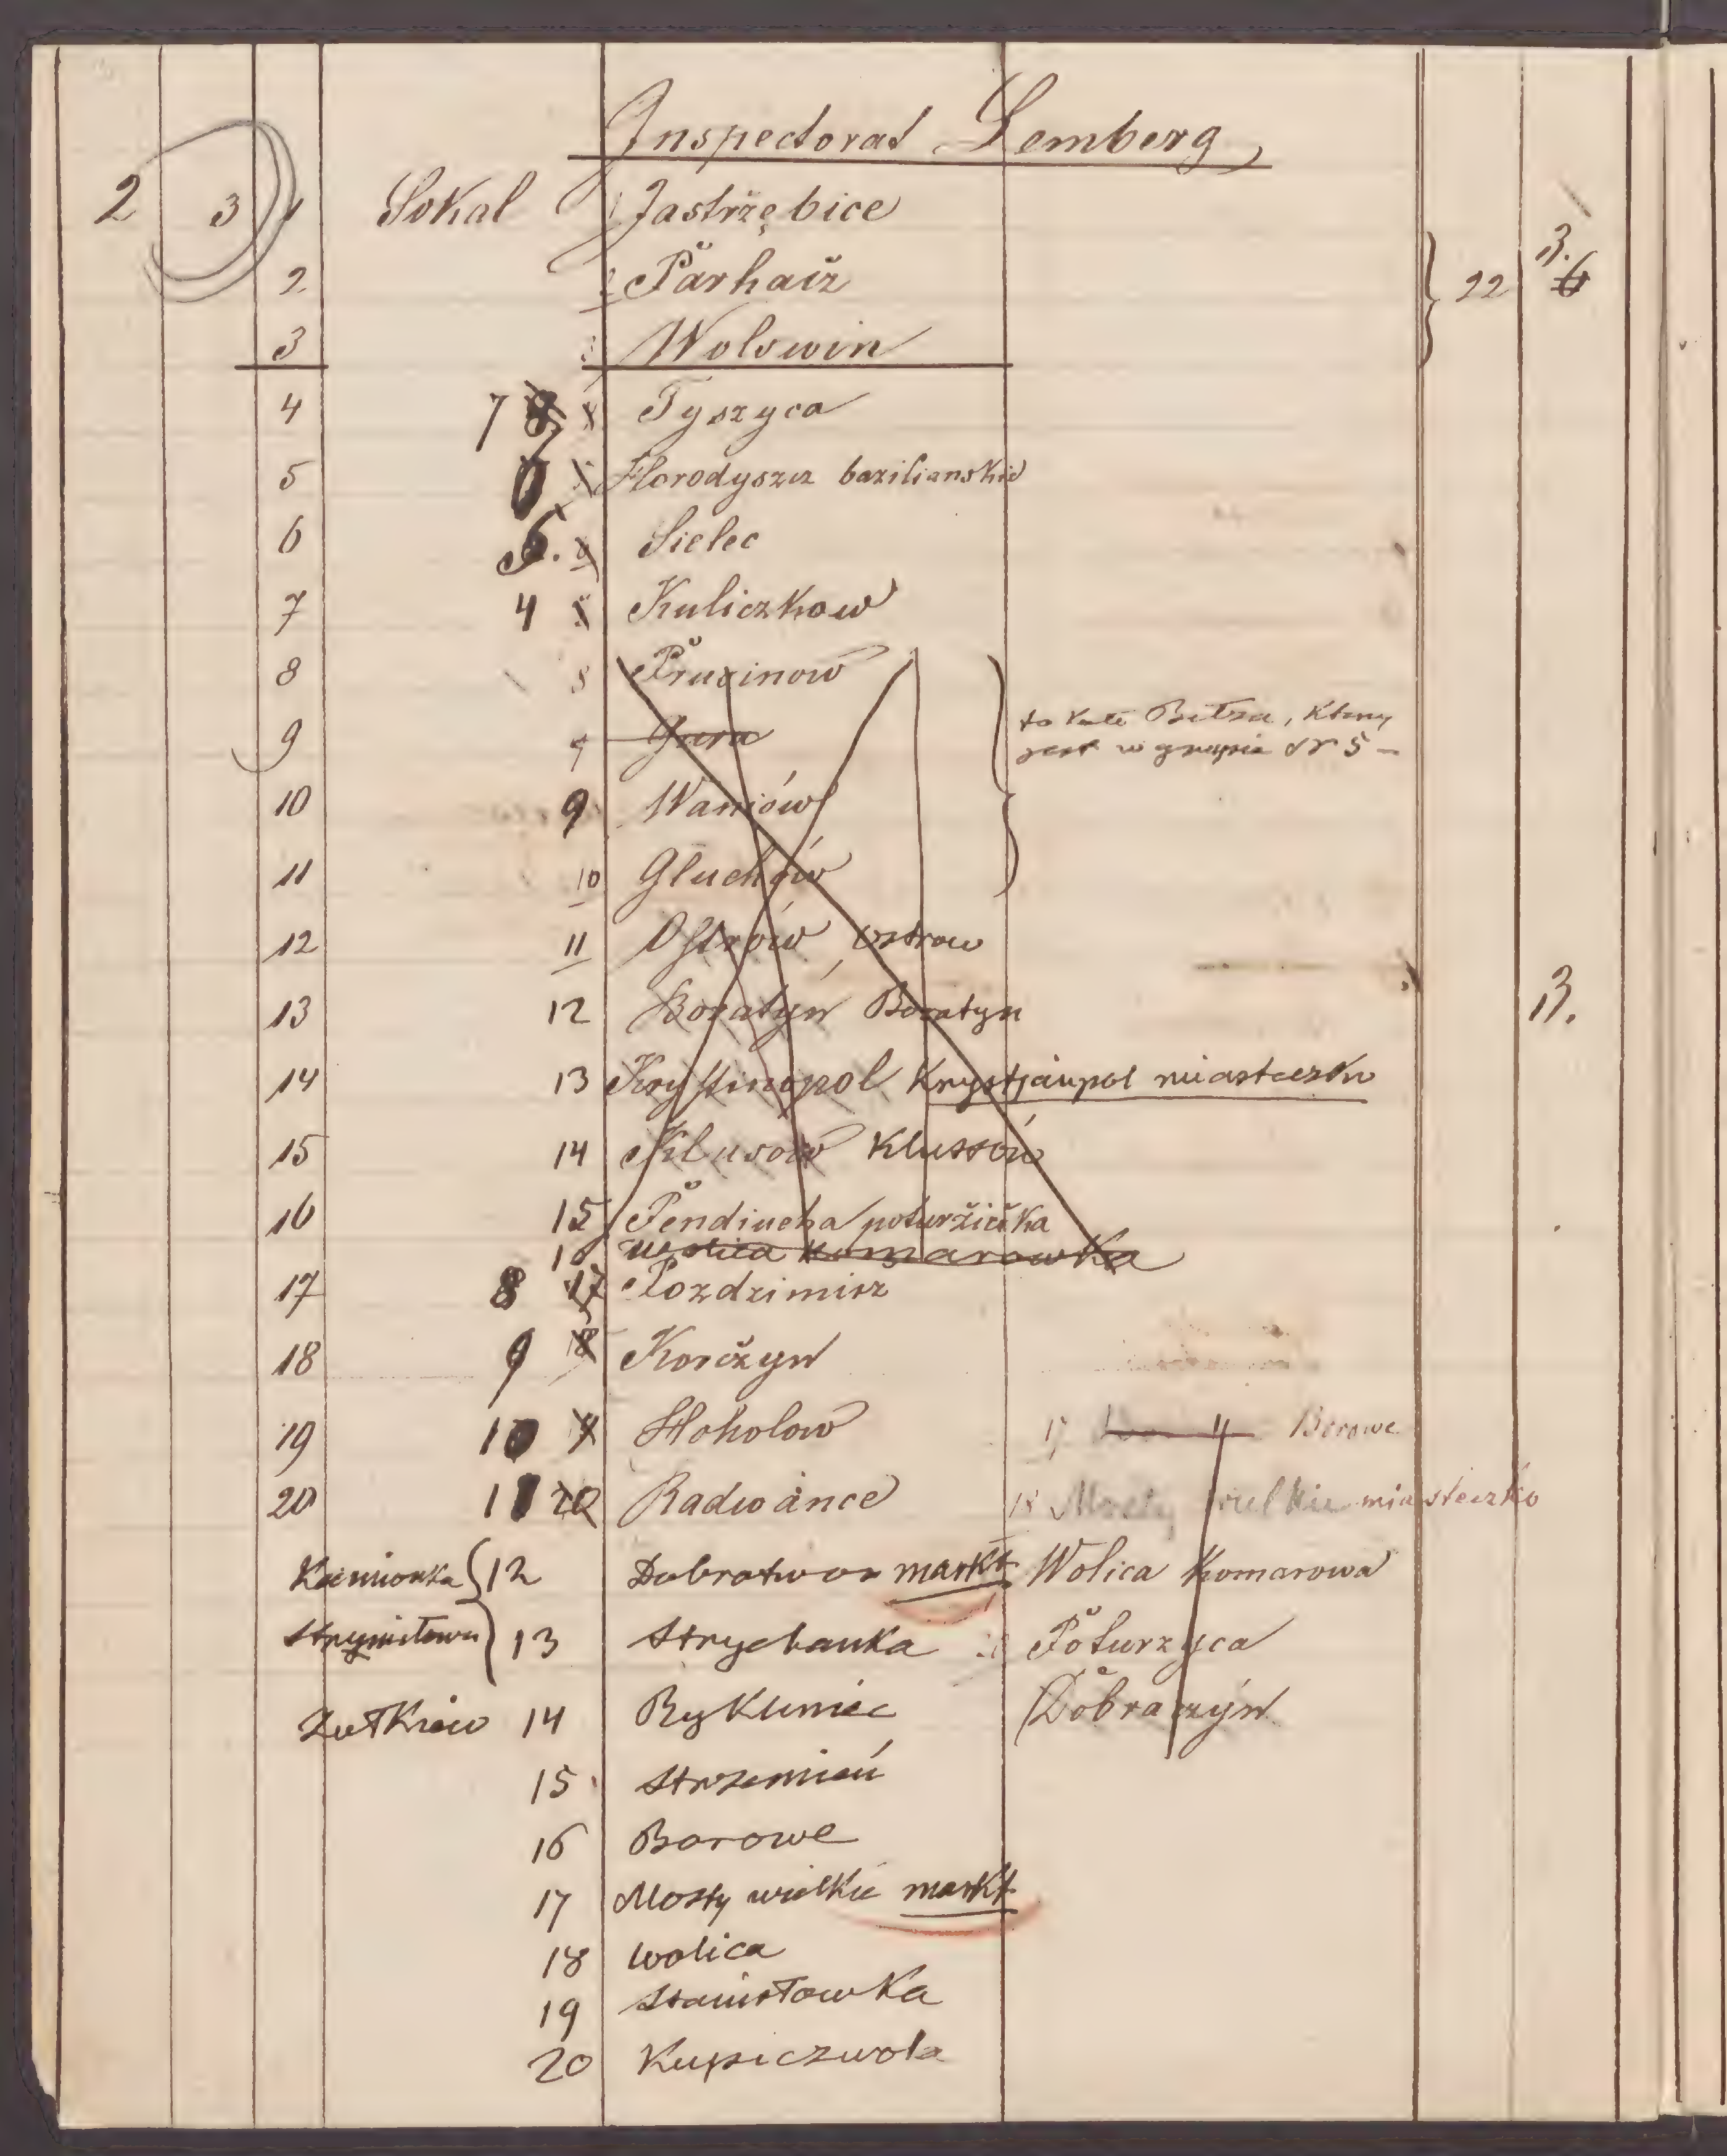 Inspectorat Lemberg
2 3 1 Sokal 1 Jastrzębice
2 2 Parhacz 22 3. 6
3 3 Wolswin
4 7 Tyszyca
5 Horodyszcz bazilianskie
6 5. Sielec
7 4 Kuliczkow
8 8 Prusinow
9 Gura
to koło Bełza, który
jest w grupie Nr 5 —
10 9 Waniów
11 10 Gluchów
12 11 Ostrów Ostrow
13 12 Boratyn Boratyn 3.
14 13 Krystinopol Krystjanpol miasteczko
15 14 Klusow Klussów
16 15 Pendiucha poturzicka
16 Wolica Komarowka
17 8 17 Pozdzimirz
18 9 18 Korczyn
19 10 Hoholow 17 Borowe
20 11 20 Radwance 18 Mosty wielkie miasteczko
Kamionka 12 Dobrotwor markt Wolica Komarowa
Strymiłowa 13 Strychanka Poturzyca
Żółkiew 14 Dobraczyn
15 Strzemień
16 Borowe
17 Mosty wielkie markt
18 Wolica
19 Stanisłowka
20 Kupiczwola